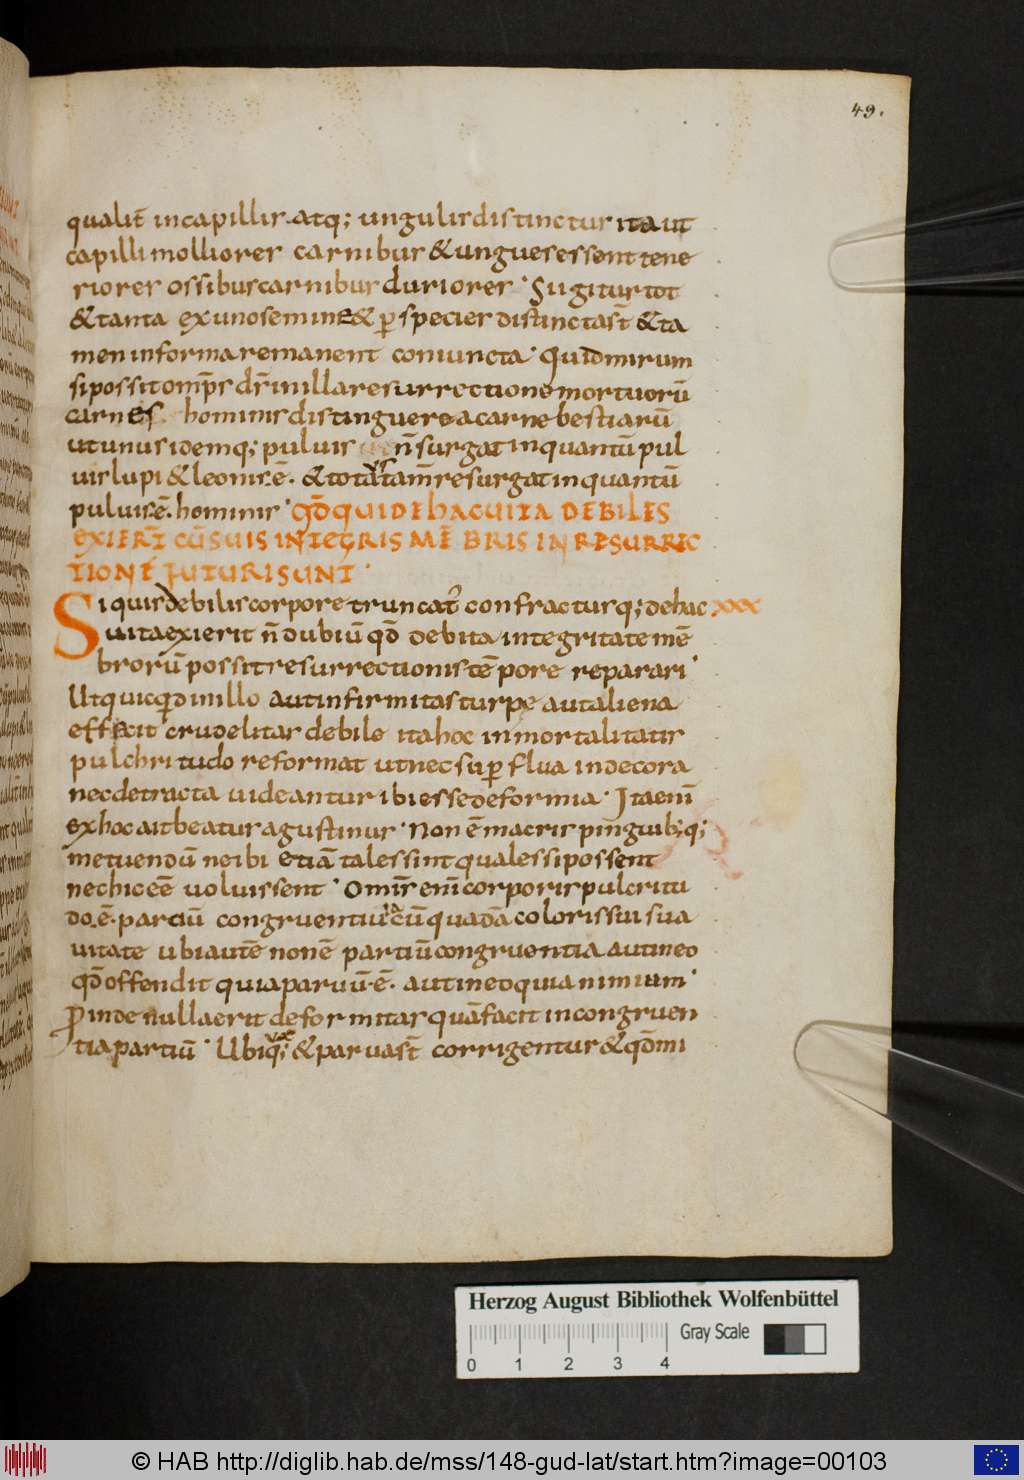 49.
qualit̄ incapillis. atq; ungulis distinctus ita ut
capilli molliores carnibus & ungues essent tene
riores ossibus carnibus duriores. Si igitur tot
& tanta ex uno semine & p̱ species distincta st̄ & ta
men in forma remanent coniuncta. Quid mirum
si possit omp̄s ds̄ in illa resurrectione mortuorū
carnes hominis distinguere a carne bestiarū
ut unus idemq; puluis n̄ surgat in quantū pul
uis lupi & leonis ē. & totus tam̄ resurgat in quantū
puluis ē. hominis. QD̄ QUI DE HAC UITA DEBILES
EXIER̄T CŪ SUIS INTEGRIS MĒBRIS IN RESURREC
TIONE FUTURI SUNT.
Si quis debilis corpore truncat᷒ confractusq; de hac XXX
uita exierit n̄ dubiū qd̄ debita integritate mē
brorū possit resurrectionis tēpore reparari.
Ut quicqd in illo aut infirmitas turpe aut aliena
effecit crudelitas debile ita hoc inmortalitatis
pulchritudo reformat ut nec sup̱flua indecora
nec detracta uideantur ibi esse deformia. Ita eni᷒
ex hoc ait beatus agustinus. Non ē macris pinguib;q;
metuendū ne ibi etiā tales sint quales si possent
nec hic eē uoluissent. Omis̄ eni᷒ corporis pulcritu
do. ē. partiū congruentia cū quadā coloris sui sua
uitate ubi autē non ē partiū congruentia aut ideo
qd̄ offendit quia paruū. ē. aut ideo quia nimium.
P̱inde nulla erit deformitas quā facit incongruen
tia partiū. Ubi & quae parua st̄ corrigentur & qd̄ mi
Herzog August Bibliothek Wolfenbüttel
Gray Scale
0 1 2 3 4
© HAB http://diglib.hab.de/mss/148-gud-lat/start.htm?image=00103